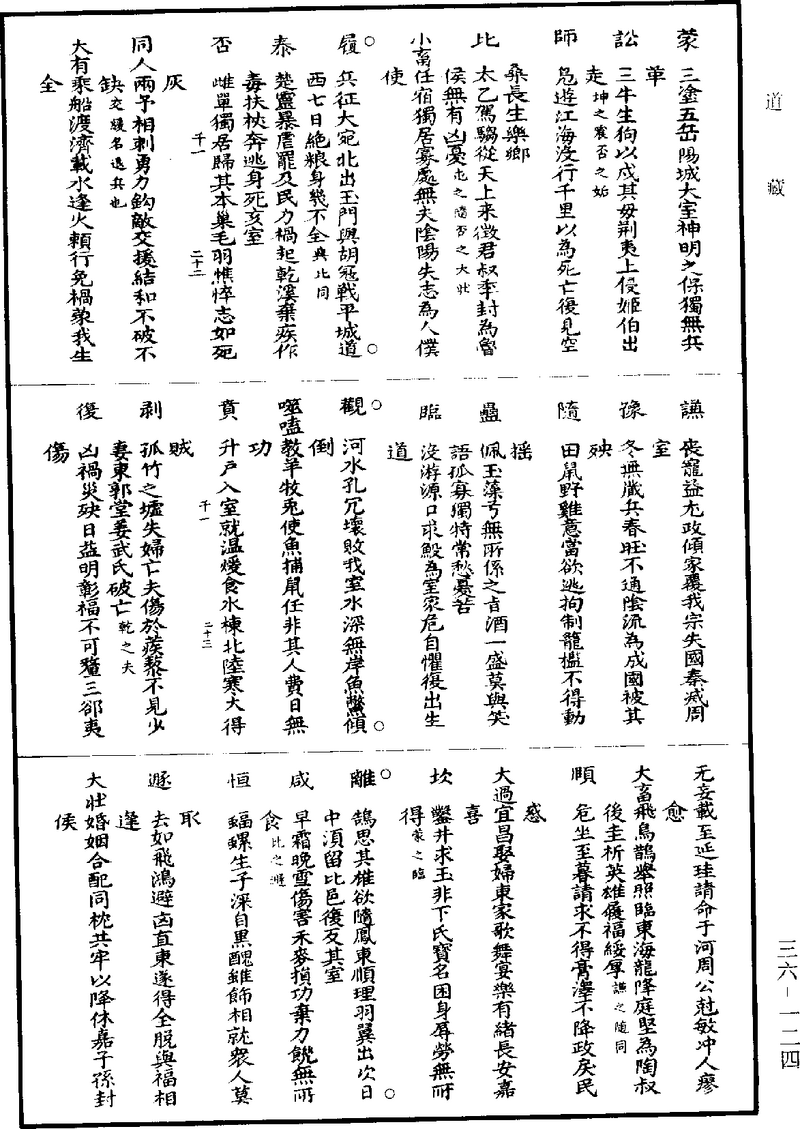 道藏
蒙 三塗五岳陽城大室神明之保獨無兵
革
訟 三牛生狗以戍其母荆夷上侵姬伯出
走 坤之震否之姤
師 鳧遊江海没行千里以為死亡後見空
桑長生樂鄉
比 太乙駕騶從天上来徴君叔季封為魯
侯無有凶憂 屯之隨否之大壮
小畜 任宿獨居寡處無夫陰陽失志為人僕
使
履 兵征大宛北出玉門與胡冦戰平城道
西七日絶粮身幾不全 與此同
泰 楚靈暴虐罷及民力禍起乾溪棄疾作
毒扶杖奔逃身死亥室
否 雌單獨居歸其本巢毛羽憔悴志如死
灰
千一 二十二
同人 兩矛相刺勇力鈞敵交援結和不破不
缺 交綏名退兵也
大有 乘船渡濟載水逢火頼行免禍蒙我生
全
謙 喪寵益尤政傾家覆我宗失國秦滅周
室
豫 冬無藏兵春旺不通陰流為成國被其
殃
隨 田鼠野雞意當欲逃拘制籠檻不得動
揺
蠱 佩玉蘂兮無所係之旨酒一盛莫與笑
語孤寡獨特常愁憂苦
臨 没游源口求鯼為室家危自懼復出生
道
觀 河水孔冗壞敗我室水深無岸魚鱉傾
倒
噬嗑 教羊牧兎使魚捕鼠任非其人費日無
功
賁 升戶入室就温煖食水楝北陸寒大得
賊
千一 二十三
剥 孤竹之墟失婦亡夫傷於蒺藜不見少
妻東郭堂姜武氏破亡 乾之夬
復 凶禍災殃日益明彰福不可釐三郤夷
傷
无妄 載至延珪請命于河周公尅敏冲人瘳
愈
大畜 飛鳥鵲舉照臨東海龍降庭堅為陶叔
後圭析英雄履福綏厚 謙之随同
頥 危坐至暮請求不得膏澤不降政戾民
惑
大過 宜昌娶婦東家歌舞宴樂有緒長安嘉
喜
坎 鑿井求玉非下氏寶名困身辱勞無所
得 蒙之臨
離 鵠思其雄欲隨鳳東順理羽翼出次日
中湏留比邑復反其室
咸 早霜晚雪傷害禾麥損功棄力饑無所
食 比之遯
恒 蝸螺生子深自黒醜雖飾相就衆人莫
取
遯 去如飛鴻避凶直東遂得全脱與福相
逢
大壮 婚姻合配同枕共牢以降休嘉子孫封
侯
三六－一二四